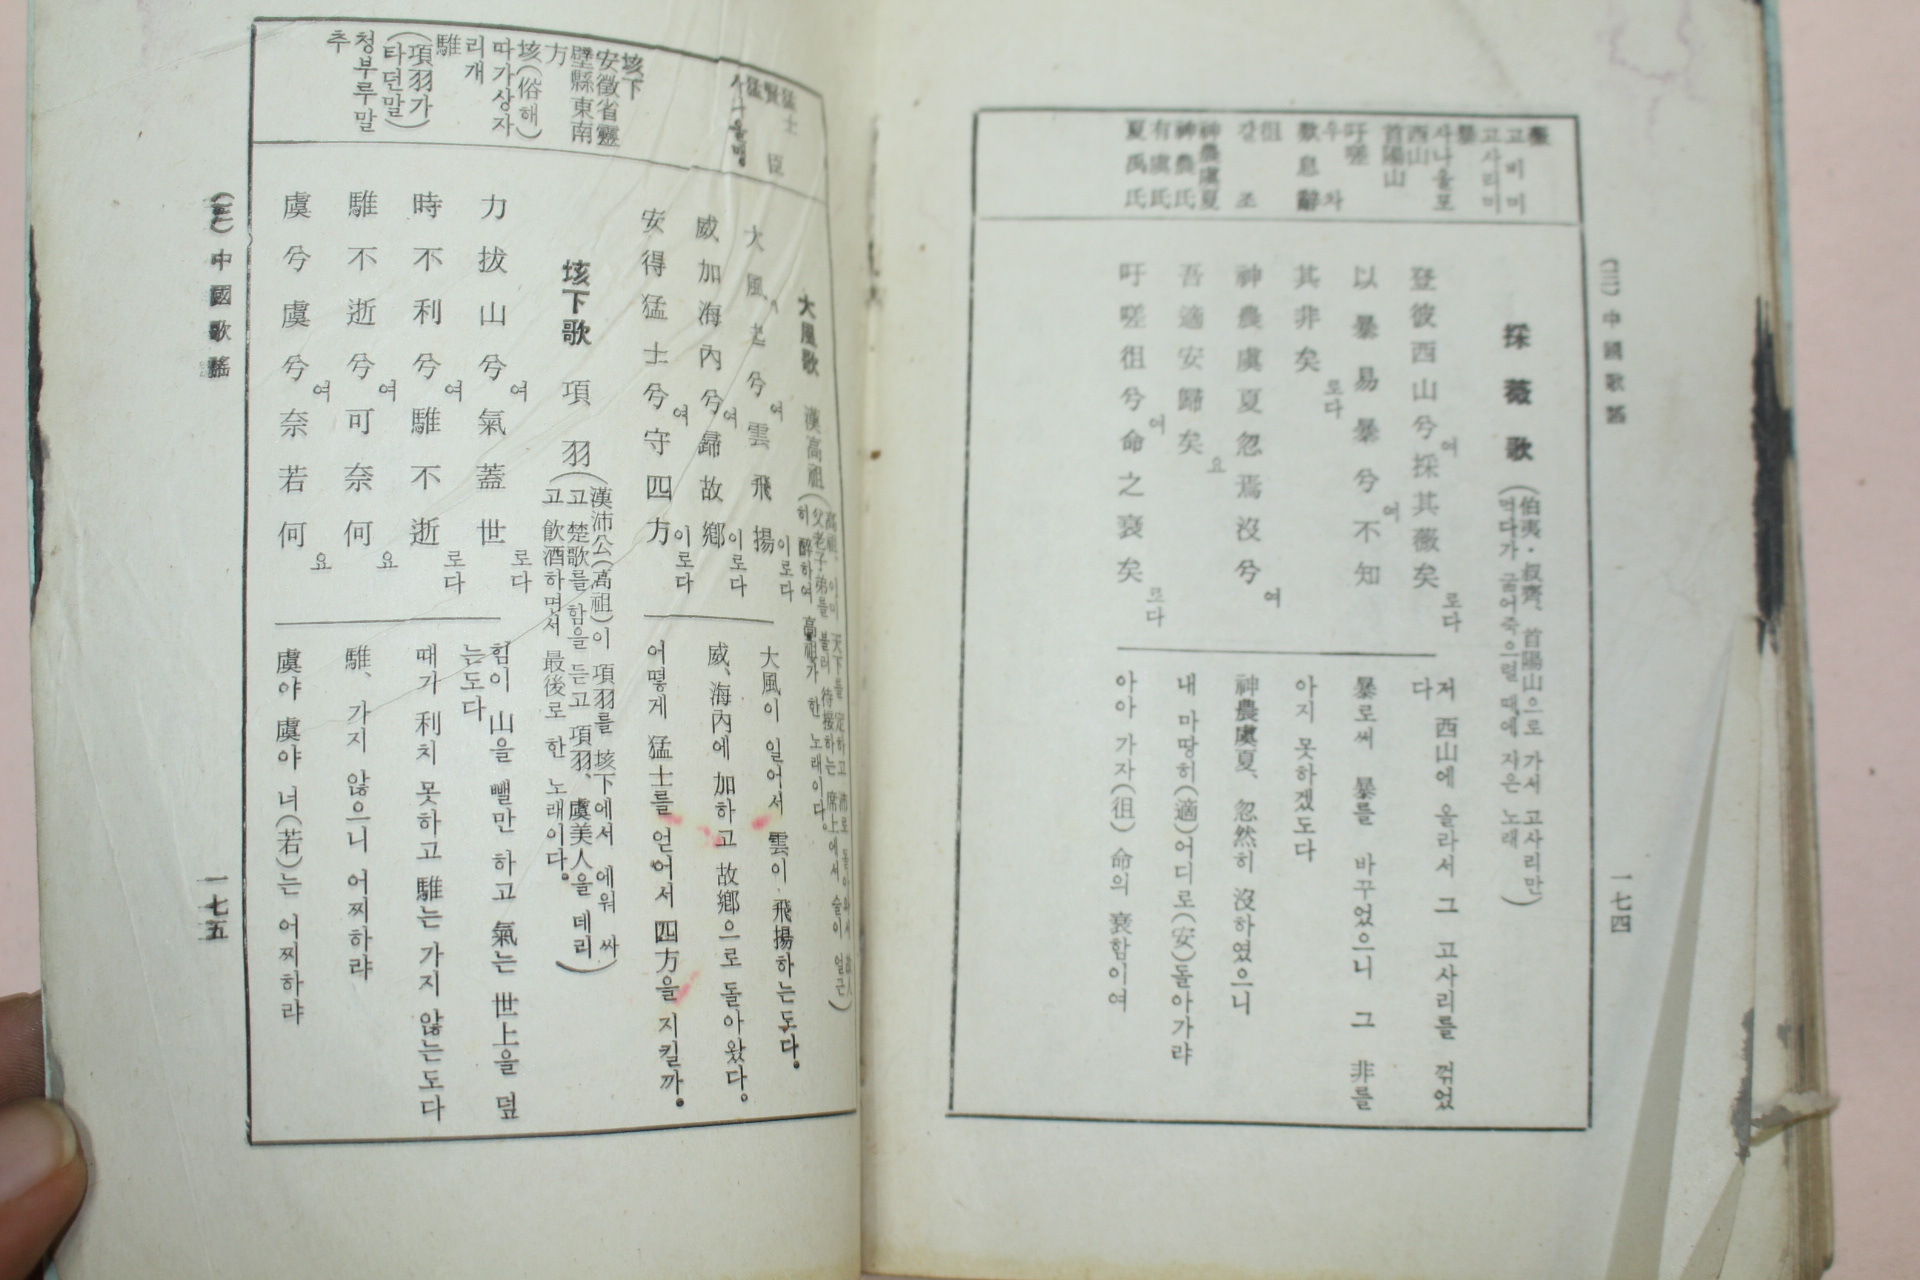 (三) 中國歌謠
一七四
薇
고비 미
고사리 미
暴
사나울 포
西山
首陽山
吁嗟
우 차
歎息辭
徂
갈 조
神農虞夏
神農氏
有虞氏
夏禹氏
採薇歌 (伯夷·叔齊、首陽山으로 가서 고사리만
먹다가 굶어죽으럴 때에 지은 노래)
登彼西山兮여 採其薇矣로다
以暴易暴兮여 不知
其非矣로다
神農虞夏忽焉沒兮여
吾適安歸矣요
吁嗟徂兮여 命之衰矣로다
저 西山에 올라서 그 고사리를 꺾었
다
暴로써 暴를 바꾸었으니 그 非를
아지 못하겠도다
神農虞夏、忽然히 沒하였으니
내 마땅히(適)어디로(安)돌아가랴
아아 가자(徂) 命의 衰함이여
猛士
賢臣
猛
사나울 맹
垓下
安徽省靈
壁縣東南
方
垓(俗해)
따가상자
리개
騅
(項羽가
타던말)
청부루말
추
大風歌 漢高祖 (高祖、이미 天下를 定하고 沛로 돌아와서 故人
父老子弟를 불러 待接하는 席上에서 술이 얼근
히 醉하여 高祖가 한 노래이다。)
大風起兮여 雲飛揚이로다
威加海內兮여 歸故鄕이로다
安得猛士兮여 守四方이로다
大風이 일어서 雲이 飛揚하는도다。
威、海內에 加하고 故鄕으로 돌아왔다。
어떻게 猛士를 얻어서 四方을 지킬까。
垓下歌 項羽 (漢沛公(高祖)이 項羽를 垓下에서 에워 싸
고 楚歌를 함을 듣고 項羽、虞美人을 데리
고 飮酒하면서 最後로 한 노래이다。)
力拔山兮여 氣蓋世로다
時不利兮여 騅不逝로다
騅不逝兮여 可奈何요
虞兮虞兮여 奈若何요
힘이 山을 뺄만 하고 氣는 世上을 덮
는도다
때가 利치 못하고 騅는 가지 않는도다
騅、가지 않으니 어찌하랴
虞야 虞야 너(若)는 어찌하랴
(三) 中國歌謠
一七五